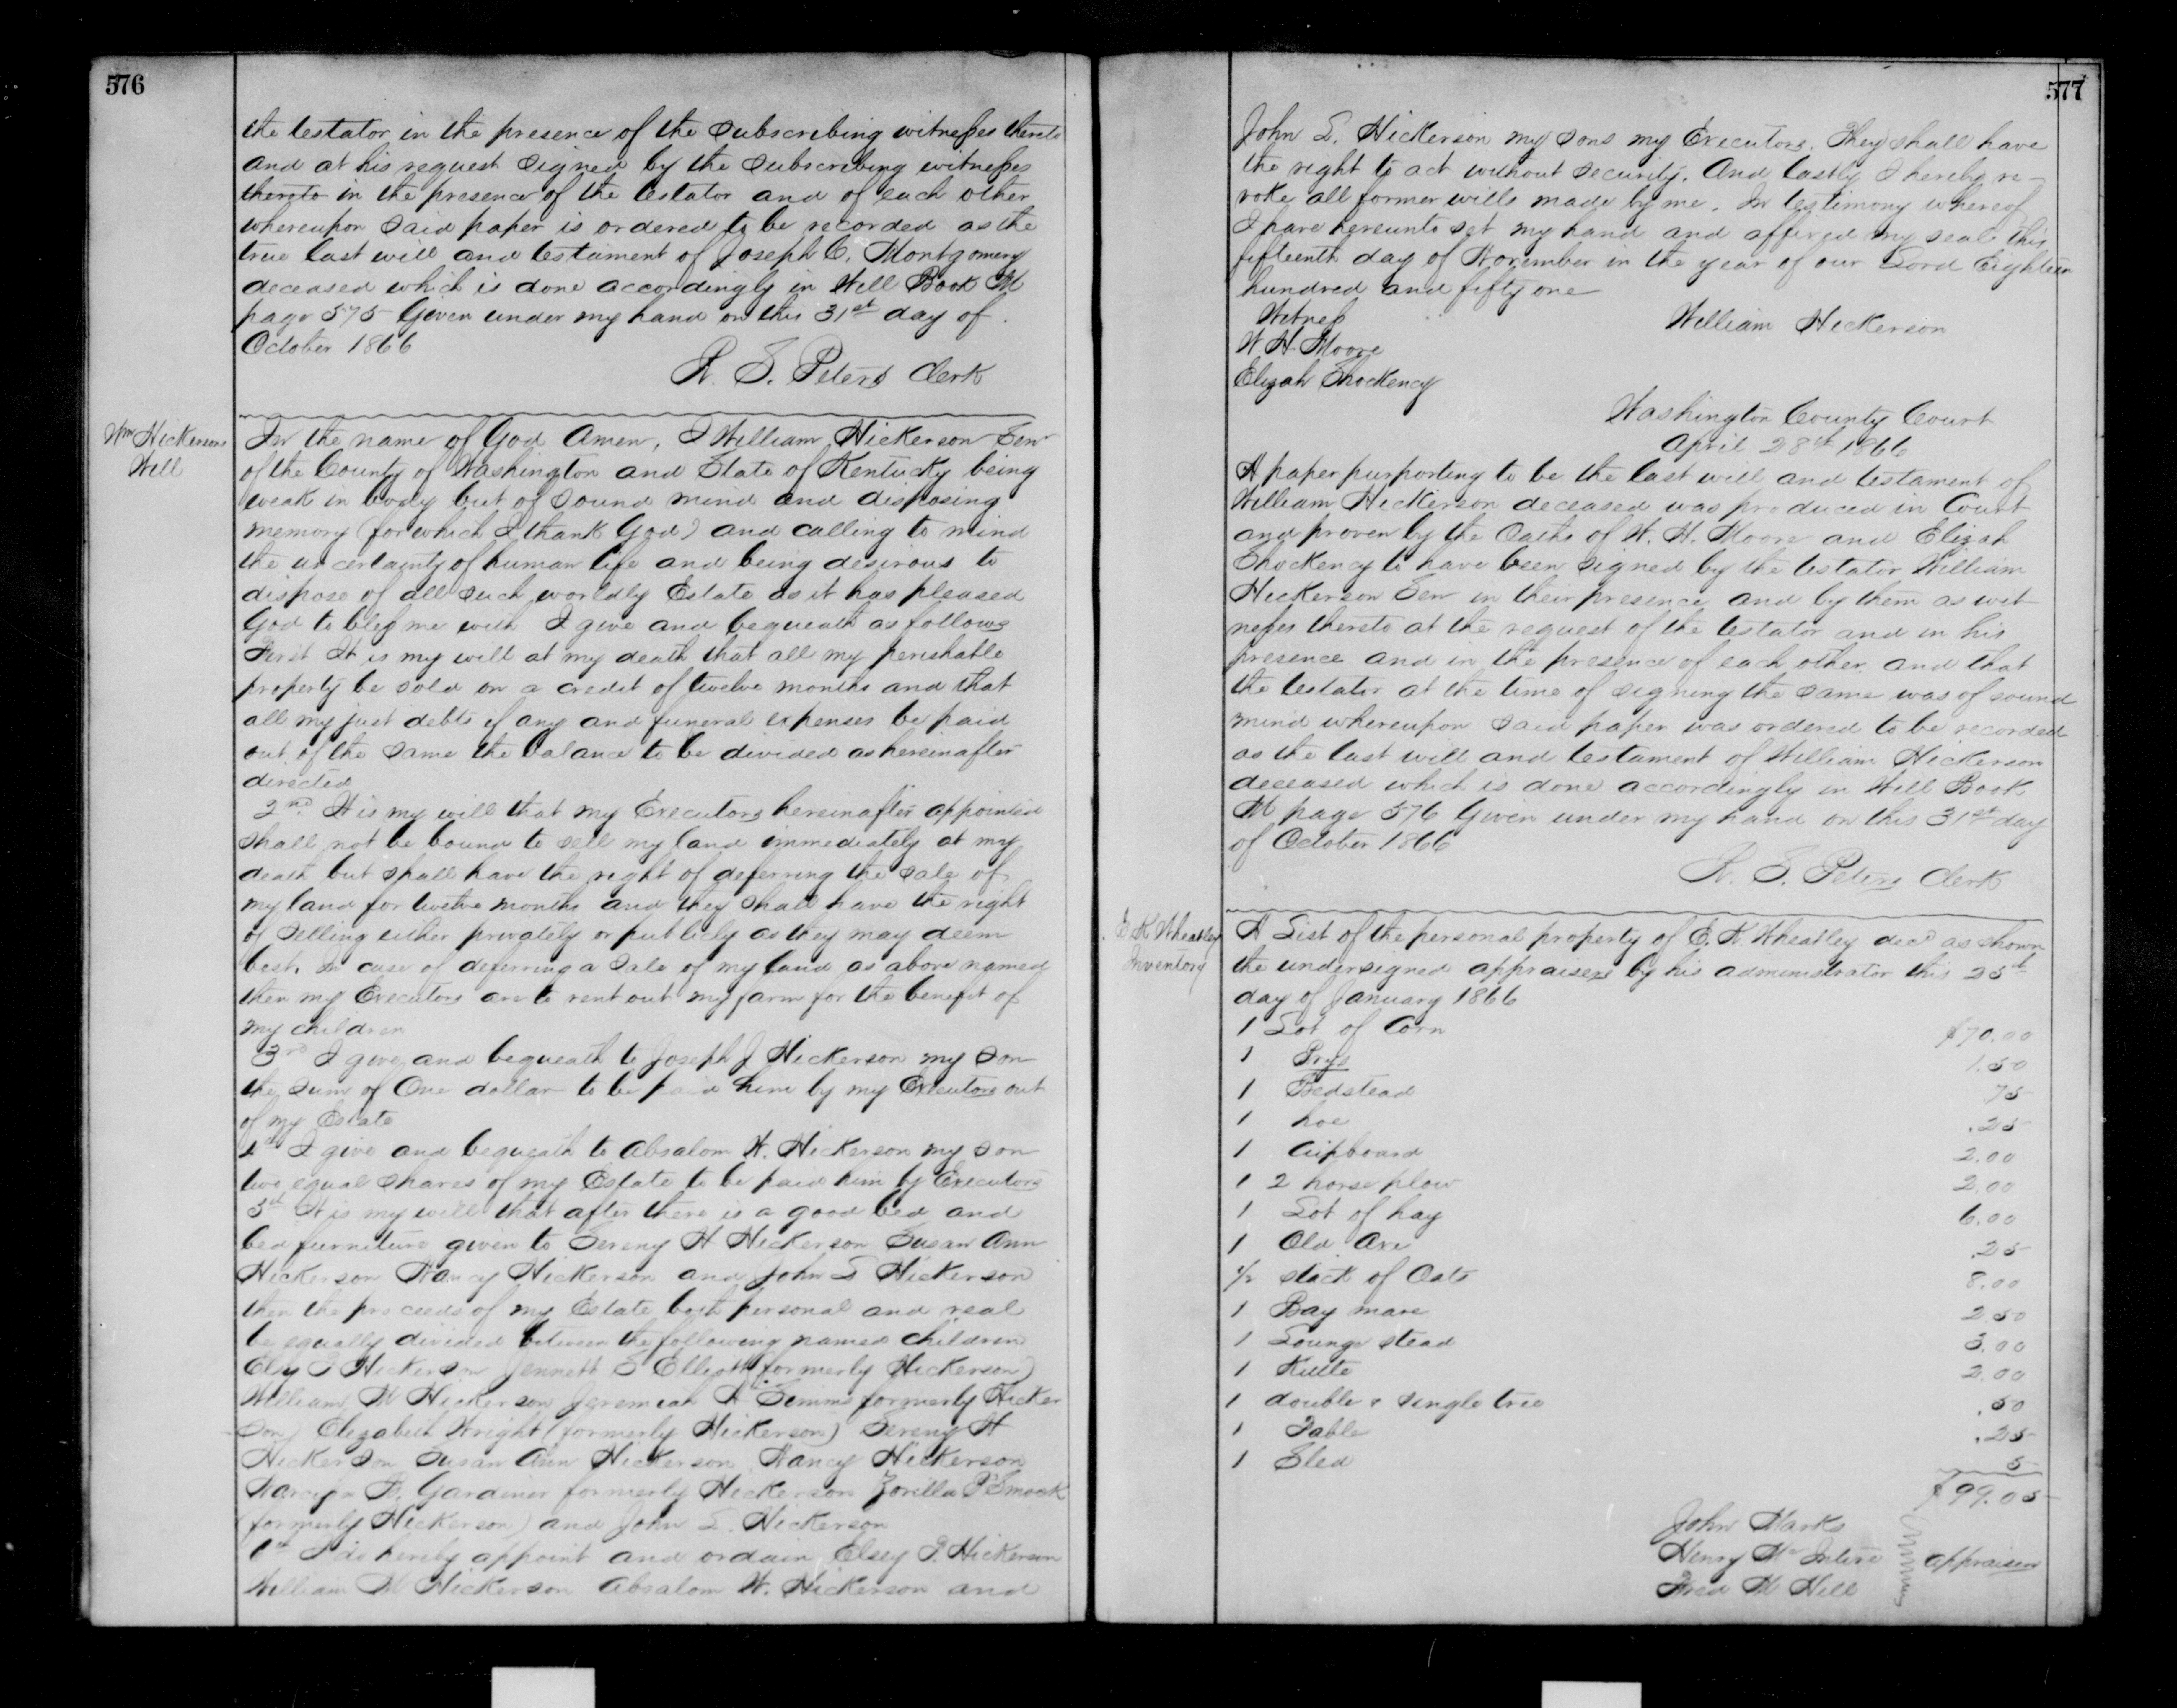 576
the testator in the presence of the Subscribing witnesses thereto
and at his request Signed by the Subscribing witnesses
thereto in the presence of the testator and of each other
whereupon Said paper is ordered to be recorded as the
true last will and testament of Joseph C. Montgomery
deceased which is done accordingly in Will Book M
page 575 Given under my hand on this 31st day of
October 1866
Clerk
Wm Hickersons
Will
In the name of God Amen, I William Hickerson Senr
of the County of Washington and State of Kentucky being
weak in body but of Sound mind and disposing
memory (for which I thank God) and calling to mind
the uncertainty of human life and being desirous to
dispose of all such worldly Estate as it has pleased
God to bless me with I give and bequeath as follows
First It is my will at my death that all my perishable
property be sold on a credit of twelve months and that
all my just debts if any and funeral expenses be paid
out of the Same the balance to be divided as hereinafter
directed
2nd It is my will that my Executors hereinafter appointed
Shall not be bound to sell my land immediately at my
death but shall have the right of deferring the Sale of
my land for twelve months and they Shall have the right
of Selling either privately or publicly as they may deem
best. In case of deferring a Sale of my land as above named
then my Executors are to rent out my farm for the benefit of
my children
3rd I give and bequeath to Joseph J Hickerson my Son
the Sum of One dollar to be paid him by my Executors out
of my Estate
4th I give and bequeath to Absalom W. Hickerson my Son
two equal Shares of my Estate to be paid him by Executors
5th It is my will that after there is a good bed and
bed furniture given to Sereny H Hickerson Susan Ann
Hickerson Nancy Hickerson and John S Hickerson
then the proceeds of my Estate both personal and real
be equally divided between the following named children
Hickerson Jennett S Elliott (formerly Hickerson)
William M Hickerson Jeremiah Simms formerly Hicker
son) Elizabeth Wright (formerly Hickerson) Sereny H
Hickerson Susan Ann Hickerson Nancy Hickerson
Gardiner formerly Hickerson Zorilla P Smock
(formerly Hickerson) and John S. Hickerson
6th I do hereby appoint and ordain Elsey P. Hickerson
William M Hickerson Absalom W. Hickerson and
577
John S. Hickerson my Sons my Executors. They shall have
the right to act without Security. And lastly I hereby re-
voke all former wills made by me. In testimony whereof
I have hereunto set my hand and affixed my seal this
fifteenth day of November in the year of our Lord Eighteen
hundred and fifty one
Witness
William Hickerson
W H Moore
Elizah Shockency
Washington County Court
April 28th 1866
A paper purporting to be the last will and testament of
William Hickerson deceased was produced in Court
and proven by the Oaths of W. H. Moore and Elizah
Shockency to have been Signed by the testator William
Hickerson Sen in their presence and by them as wit
nesses thereto at the request of the testator and in his
presence and in the presence of each other and that
the testator at the time of signing the same was of sound
mind whereupon Said paper was ordered to be recorded
as the last will and testament of William Hickerson
deceased which is done accordingly in Will Book
M page 576 Given under my hand on this 31st day
of October 1866
Clerk
E. K Wheatley
Inventory
A List of the personal property of E. K. Wheatley decd as shown
the undersigned appraisers by his administrator this 25th
day of January 1866
1 Lot of Corn $70.00
1 1.50
1 Bedstead 75
1 hoe .25
1 Cupboard 2.00
1 2 horse plow 2.00
1 Lot of hay 6.00
1 Old Axe .25
1/2 stack of Oats 8.00
1 Bay mare 2.50
1 Lounge stead 3.00
1 2.00
1 double & single tree .50
1 Table .25
1 Sled 5
$99.05
John Marks
Henry McIntire appraisers
Fred M Hill